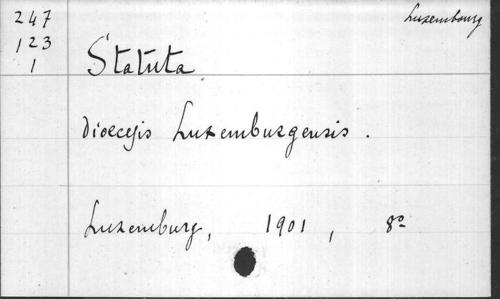 247
123
1
Luxembourg
Statuta
Dioecesis Luxemburgensis.
Luxemburg, 1901, 8º